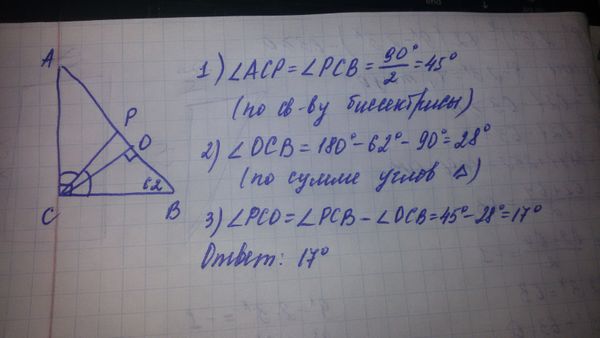 A
P
O
62
C
B
1) ∠ACP = ∠PCB = 90°/2 = 45°
(по св-ву биссектрисы)
2) ∠OCB = 180° - 62° - 90° = 28°
(по сумме углов △)
3) ∠PCO = ∠PCB - ∠OCB = 45° - 28° = 17°
Ответ: 17°